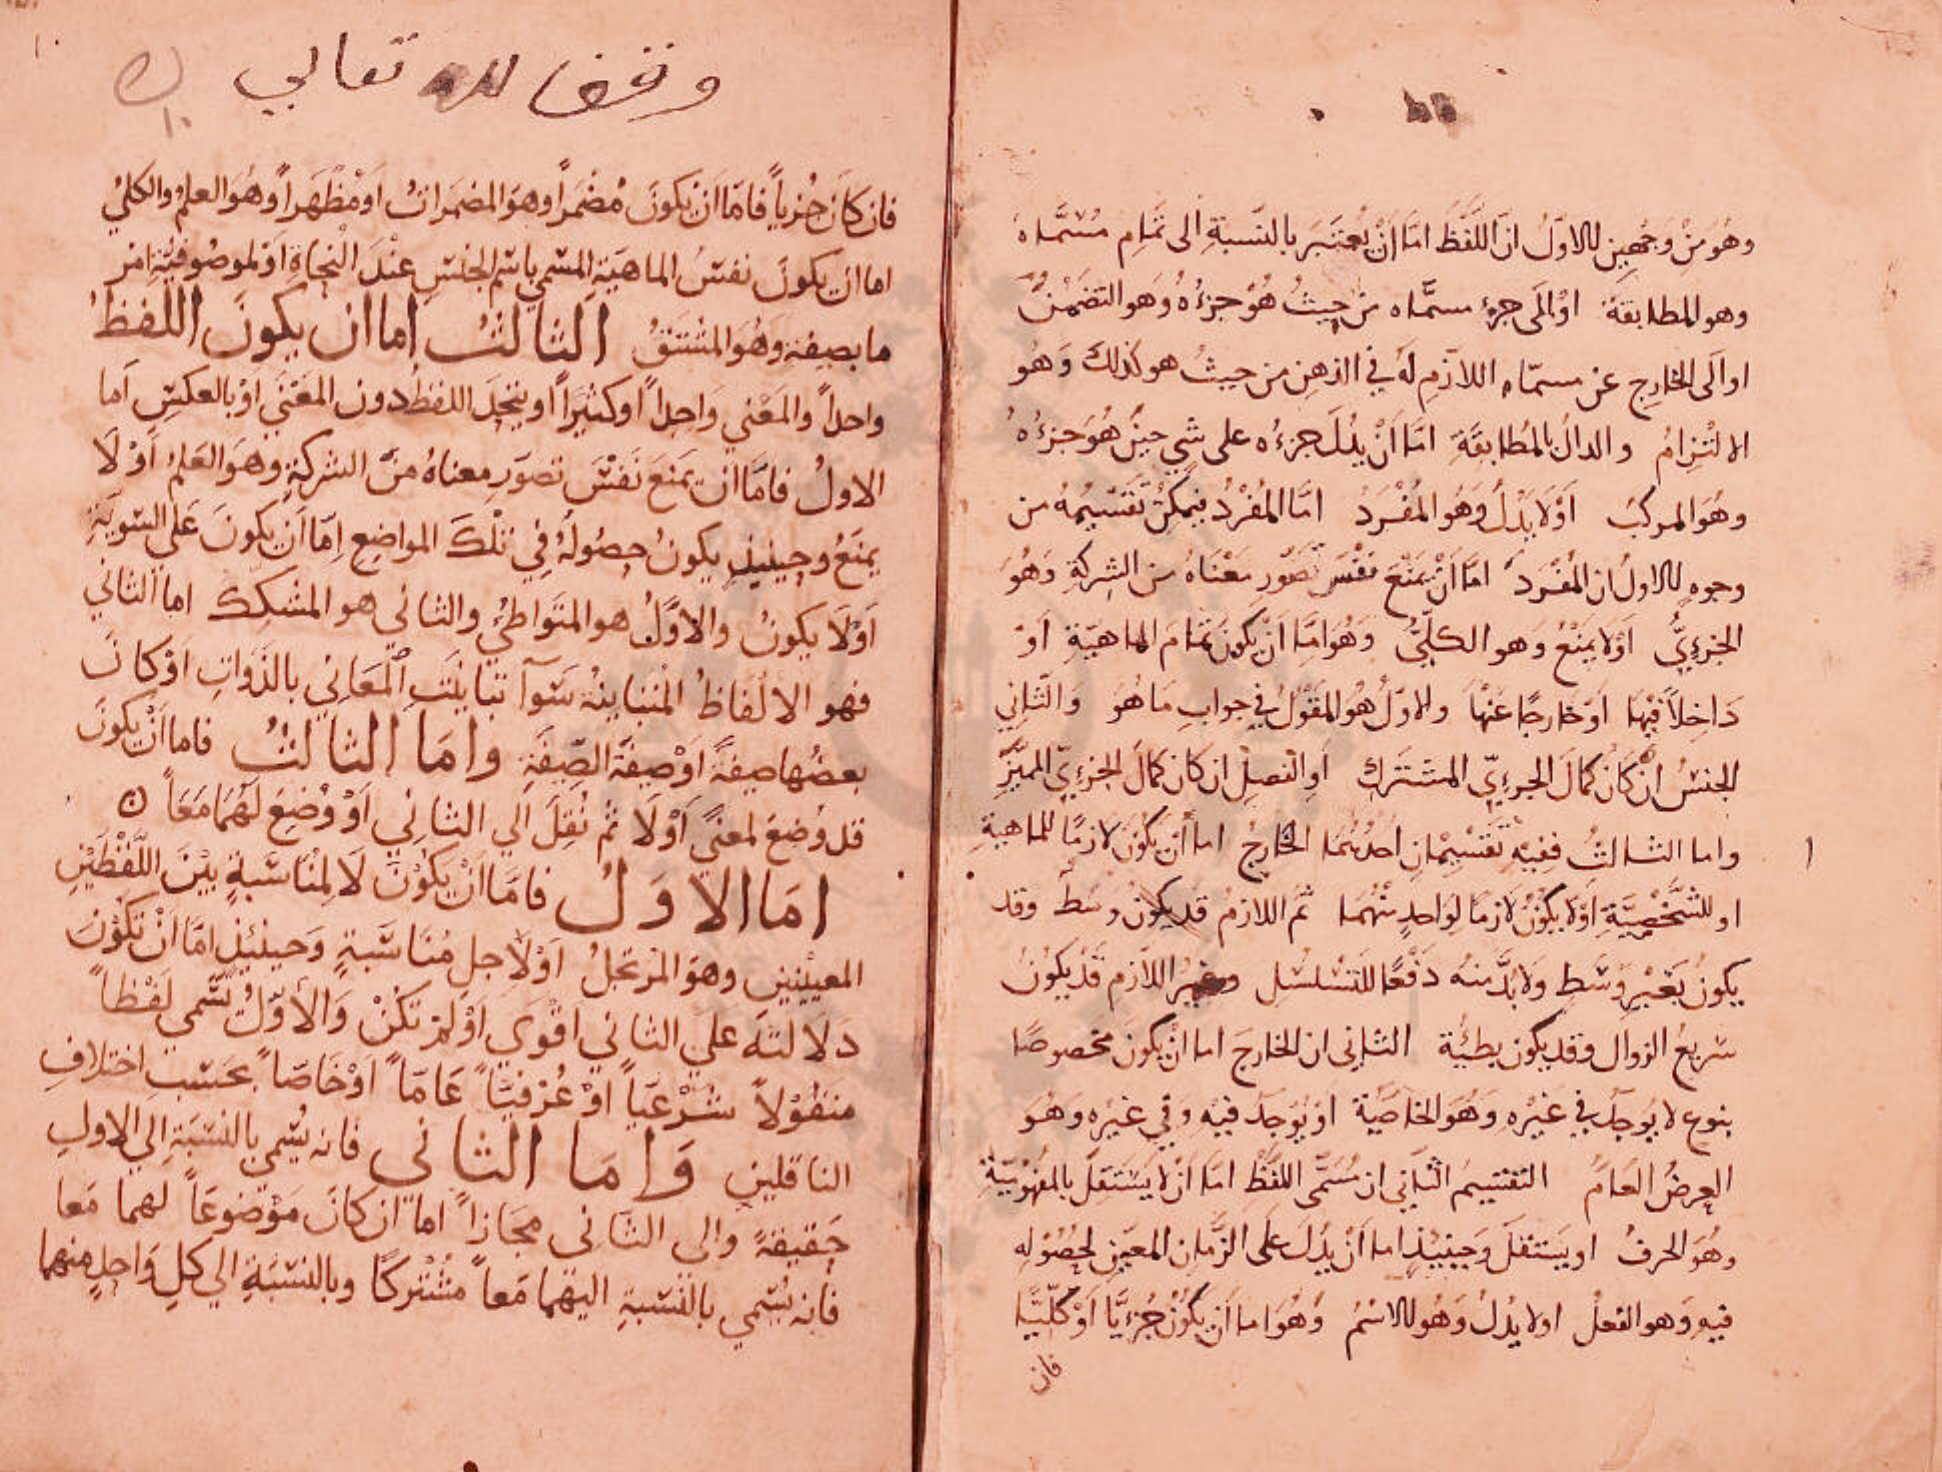 وهو من وجهين للاول ان اللفظ اما ان يعتبر بالنسبة الى تمام مسماه
وهو المطابقة او الى جزء مسماه من حيث هو جزءه وهو التضمن
او الى الخارج عن مسماه اللازم له في الذهن من حيث هو كذلك وهو
الالتزام والدال بالمطابقة اما ان يدل جزءه على شي حين هو جزءه
وهو المركب او لا يدل وهو المفرد اما المفرد فيمكن تقسيمه من
وجوه للاول ان المفرد اما ان يمنع نفس تصور معناه من الشركة وهو
الجزءي او لا يمنع وهو الكلي وهو اما ان يكون تمام الماهية او
داخلا فيها او خارجا عنها ولاول هو المقول في جواب ما هو والثاني
الجنس ان كان كمال الجزءي المشترك او الفصل ان كان كمال الجزءي المميز
واما الثالث ففيه تقسيمان احدهما الخارج اما ان يكون لازما للماهية
او للشخصية او لا يكون لازما لواحد منهما ثم اللازم قد يكون وسط وقد
يكون بغير وسط ولا بد منه دفعا للتسلسل وغير اللازم قد يكون
سريع الزوال وقد يكون بطيئة الثاني ان الخارج اما ان يكون مخصوصا
بنوع لا يوجد في غيره وهو الخاصية او يوجد فيه وفي غيره وهو
العرض العام التقسيم الثاني ان مسمى اللفظ اما ان لا يستقل بالمفهومية
وهو الحرف او يستقل وحينيذ اما ان يدل على الزمان المعين لحصوله
فيه وهو الفعل او لا يدل وهو للاسم وهو اما ان يكون جزءيا او كليا
فان
وقف لله تعالى
١٠
فان كان جزياً فاما ان يكون مضمراً وهو المضمرات او مظهراً وهو العلم والكلي
اما ان يكون نفس الماهية المسمي باسم الجنس عند النحاة او لموصوفية امر
ما بصيفة وهو المشتق الثالث اما ان يكون اللفظ
واحداً والمعني واحداً او كثيراً او يتحد اللفظ دون المعني او بالعكس اما
الاول فاما ان يمنع نفس تصور معناه من الشركة وهو العلم او لا
يمنع وحينيذ يكون حصوله في تلك المواضع اما ان يكون علي السوية
او لا يكون والاول هو المتواطئ والثاني هو المشكك اما الثاني
فهو الالفاظ المتباينة سوآ تباينت المعاني بالذوات او كان
بعضها صيفة او صيفة الصيفة واما الثالث فاما ان يكون
قد وضع لمعني اولا ثم نقل الي الثاني او وضع لهما معاً
اما الاول فاما ان يكون لا لمناسبة بين اللفظين
المعينين وهو المرتجل او لاجل مناسبة وحينيذ اما ان تكون
دلالته علي الثاني اقوي او لم تكن والاول تسمي لفظاً
منقولاً شرعياً او عرفياً عاماً او خاصاً بحسب اختلاف
الناقلين واما الثاني فانه يسمي بالنسبة الي الاول
حقيقةً والى الثاني مجازاً اما ان كان موضوعاً لهما معا
فانه يسمي بالنسبة اليهما معاً مشتركا وبالنسبة الي كل واحد منهما